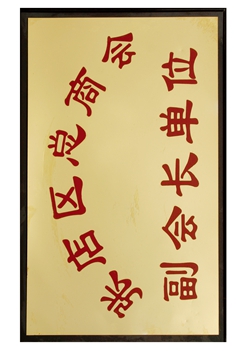 张店区总商会
副会长单位